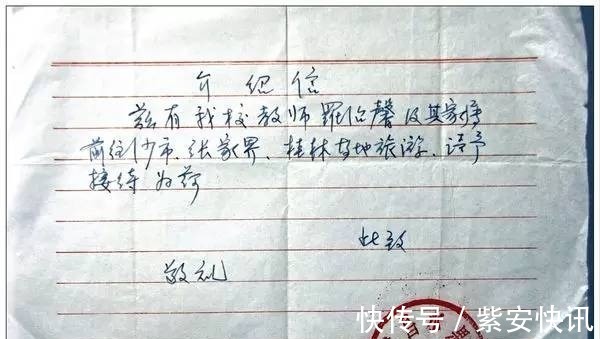 介绍信
兹有我校教师罗治馨及其家属
前往沙市、张家界、桂林等地旅游、请予
接待为荷
此致
敬礼
快传号 / 紫安快讯